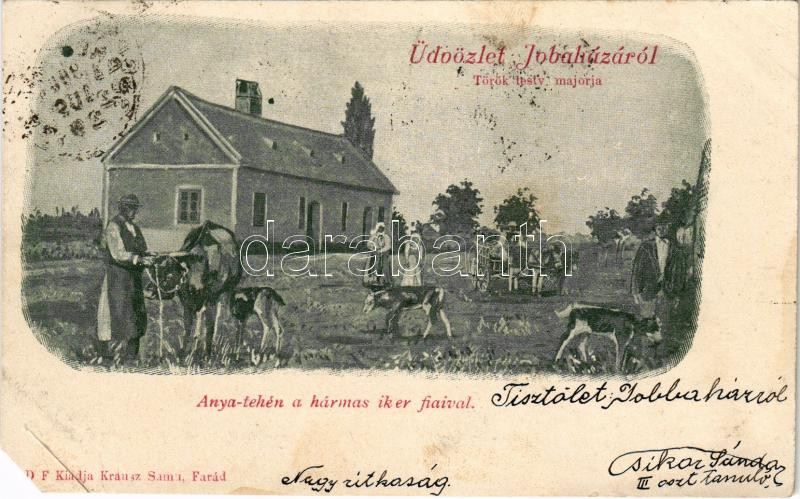 Üdvözlet Jobaházáról
Török testv. majorja
darabanth
Anya-tehén a hármas iker fiaival.
Tisztölet Jobbaházról
D F Kiadja Krausz Samu, Farád
Nagy ritkaság.
Csikor Sándor
III oszt tanuló